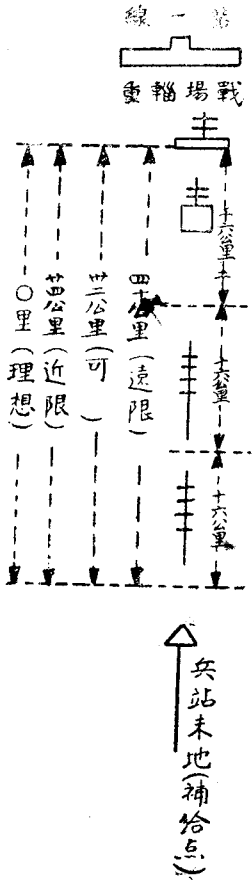 第一線
戰場輜重
十六公里
十六公里
十六公里
四十公里(遠限)
卅二公里(可 )
廿四公里(近限)
〇里(理想)
兵站末地(補給点)